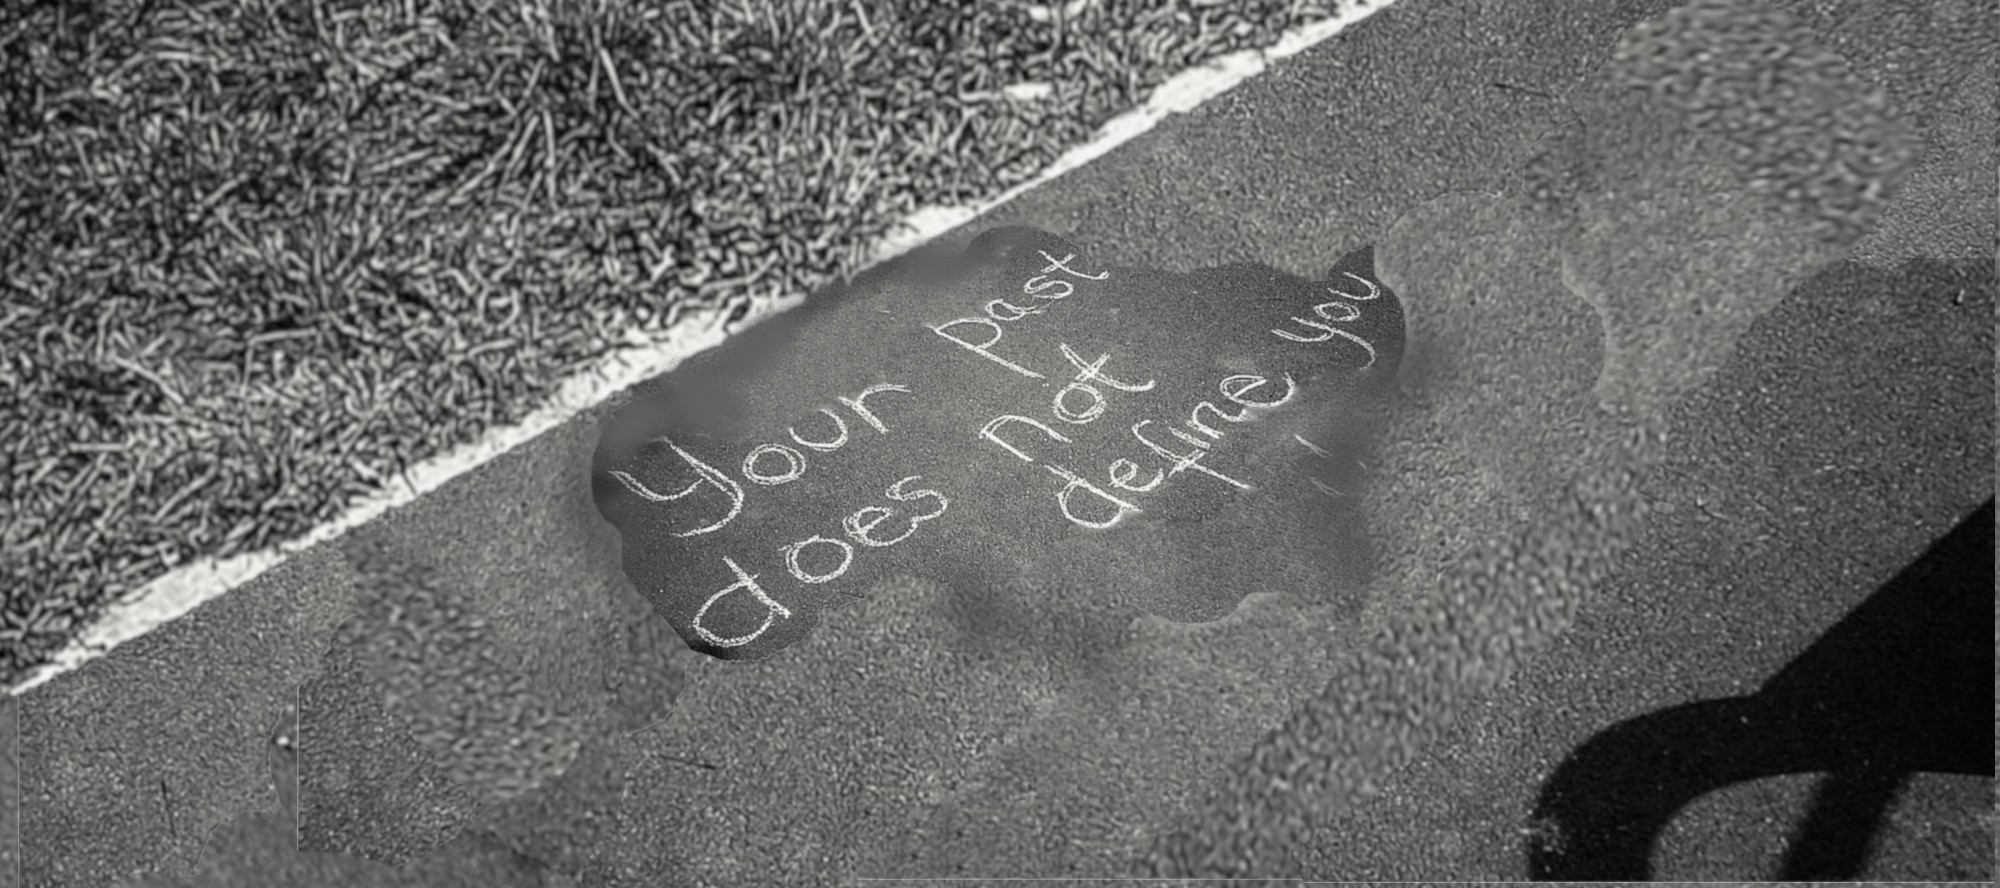 Your past
does not
define you